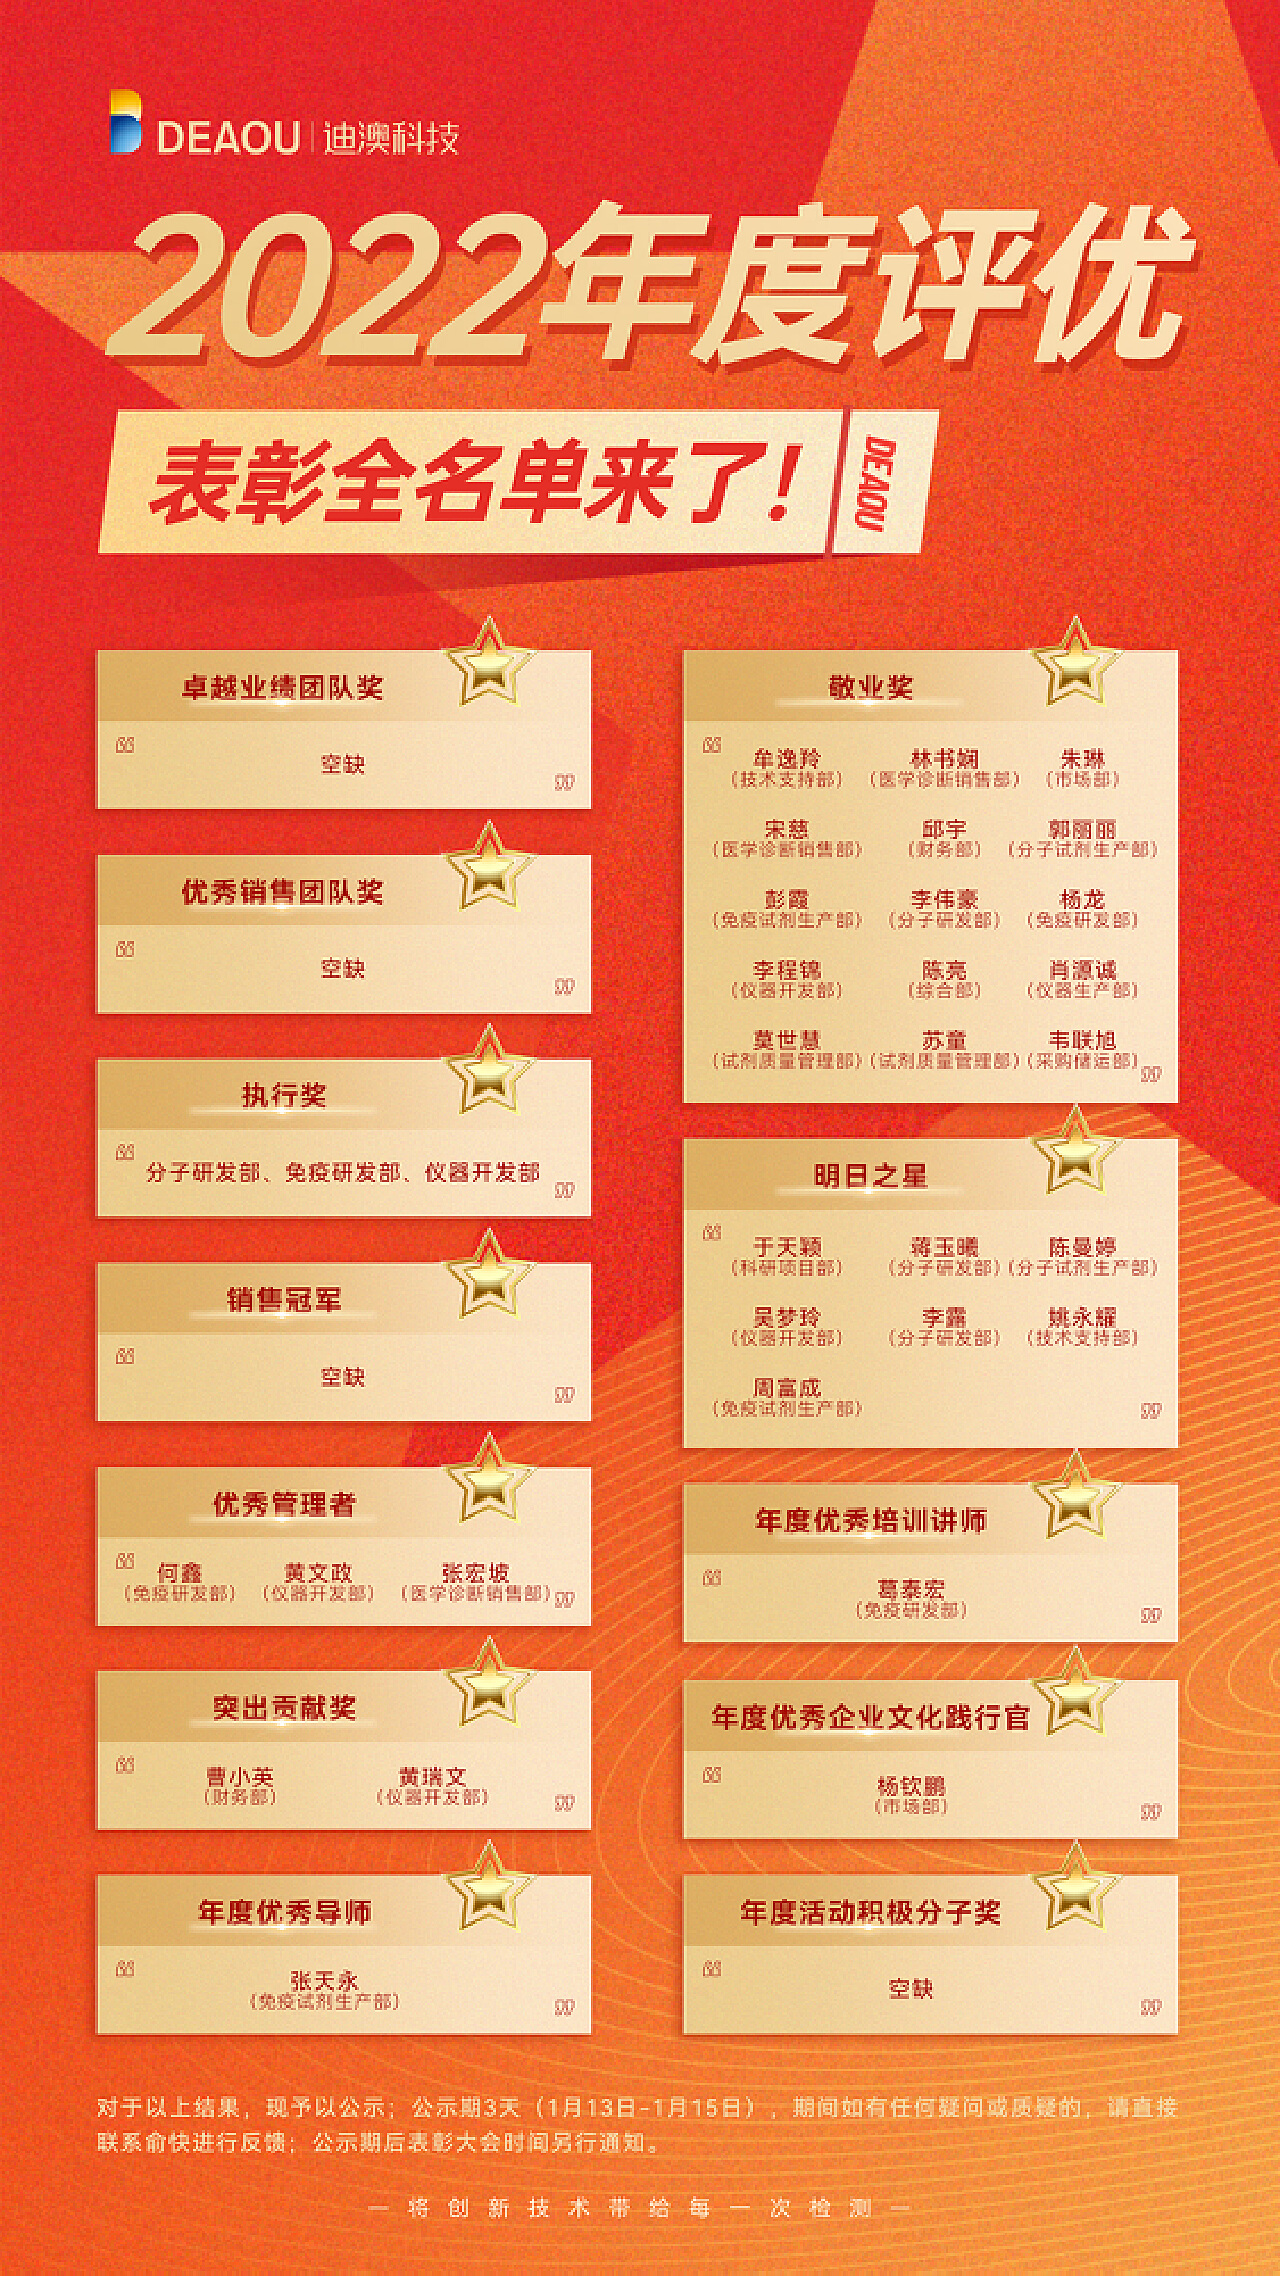 DEAOU 迪澳科技
2022年度评优
表彰全名单来了！
DEAOU
卓越业绩团队奖
空缺
优秀销售团队奖
空缺
执行奖
分子研发部、免疫研发部、仪器开发部
销售冠军
空缺
优秀管理者
何鑫 黄文政 张宏坡
（免疫研发部） （仪器开发部） （医学诊断销售部）
突出贡献奖
曹小英 黄瑞文
（财务部） （仪器开发部）
年度优秀导师
张天永
（免疫试剂生产部）
敬业奖
牟逸羚 林书娴 朱琳
（技术支持部） （医学诊断销售部） （市场部）
宋慈 邱宇 郭丽丽
（医学诊断销售部） （财务部） （分子试剂生产部）
彭霞 李伟豪 杨龙
（免疫试剂生产部） （分子研发部） （免疫研发部）
李程锦 陈亮 肖源诚
（仪器开发部） （综合部） （仪器生产部）
莫世慧 苏童 韦联旭
（试剂质量管理部） （试剂质量管理部） （采购储运部）
明日之星
于天颖 蒋玉曦 陈曼婷
（科研项目部） （分子研发部） （分子试剂生产部）
吴梦玲 李露 姚永耀
（仪器开发部） （分子研发部） （技术支持部）
周富成
（免疫试剂生产部）
年度优秀培训讲师
葛泰宏
（免疫研发部）
年度优秀企业文化践行官
杨钦鹏
（市场部）
年度活动积极分子奖
空缺
对于以上结果，现予以公示；公示期3天（1月13日-1月15日），期间如有任何疑问或质疑的，请直接
联系俞快进行反馈；公示期后表彰大会时间另行通知。
— 将创新技术带给每一次检测 —